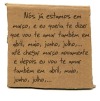 Nós já estamos em
março, e eu queria te dizer
que vou te amar também em
abril, maio, junho, julho...
até chegar março novamente
e depois eu vou te amar
também em abril, maio,
junho, julho...